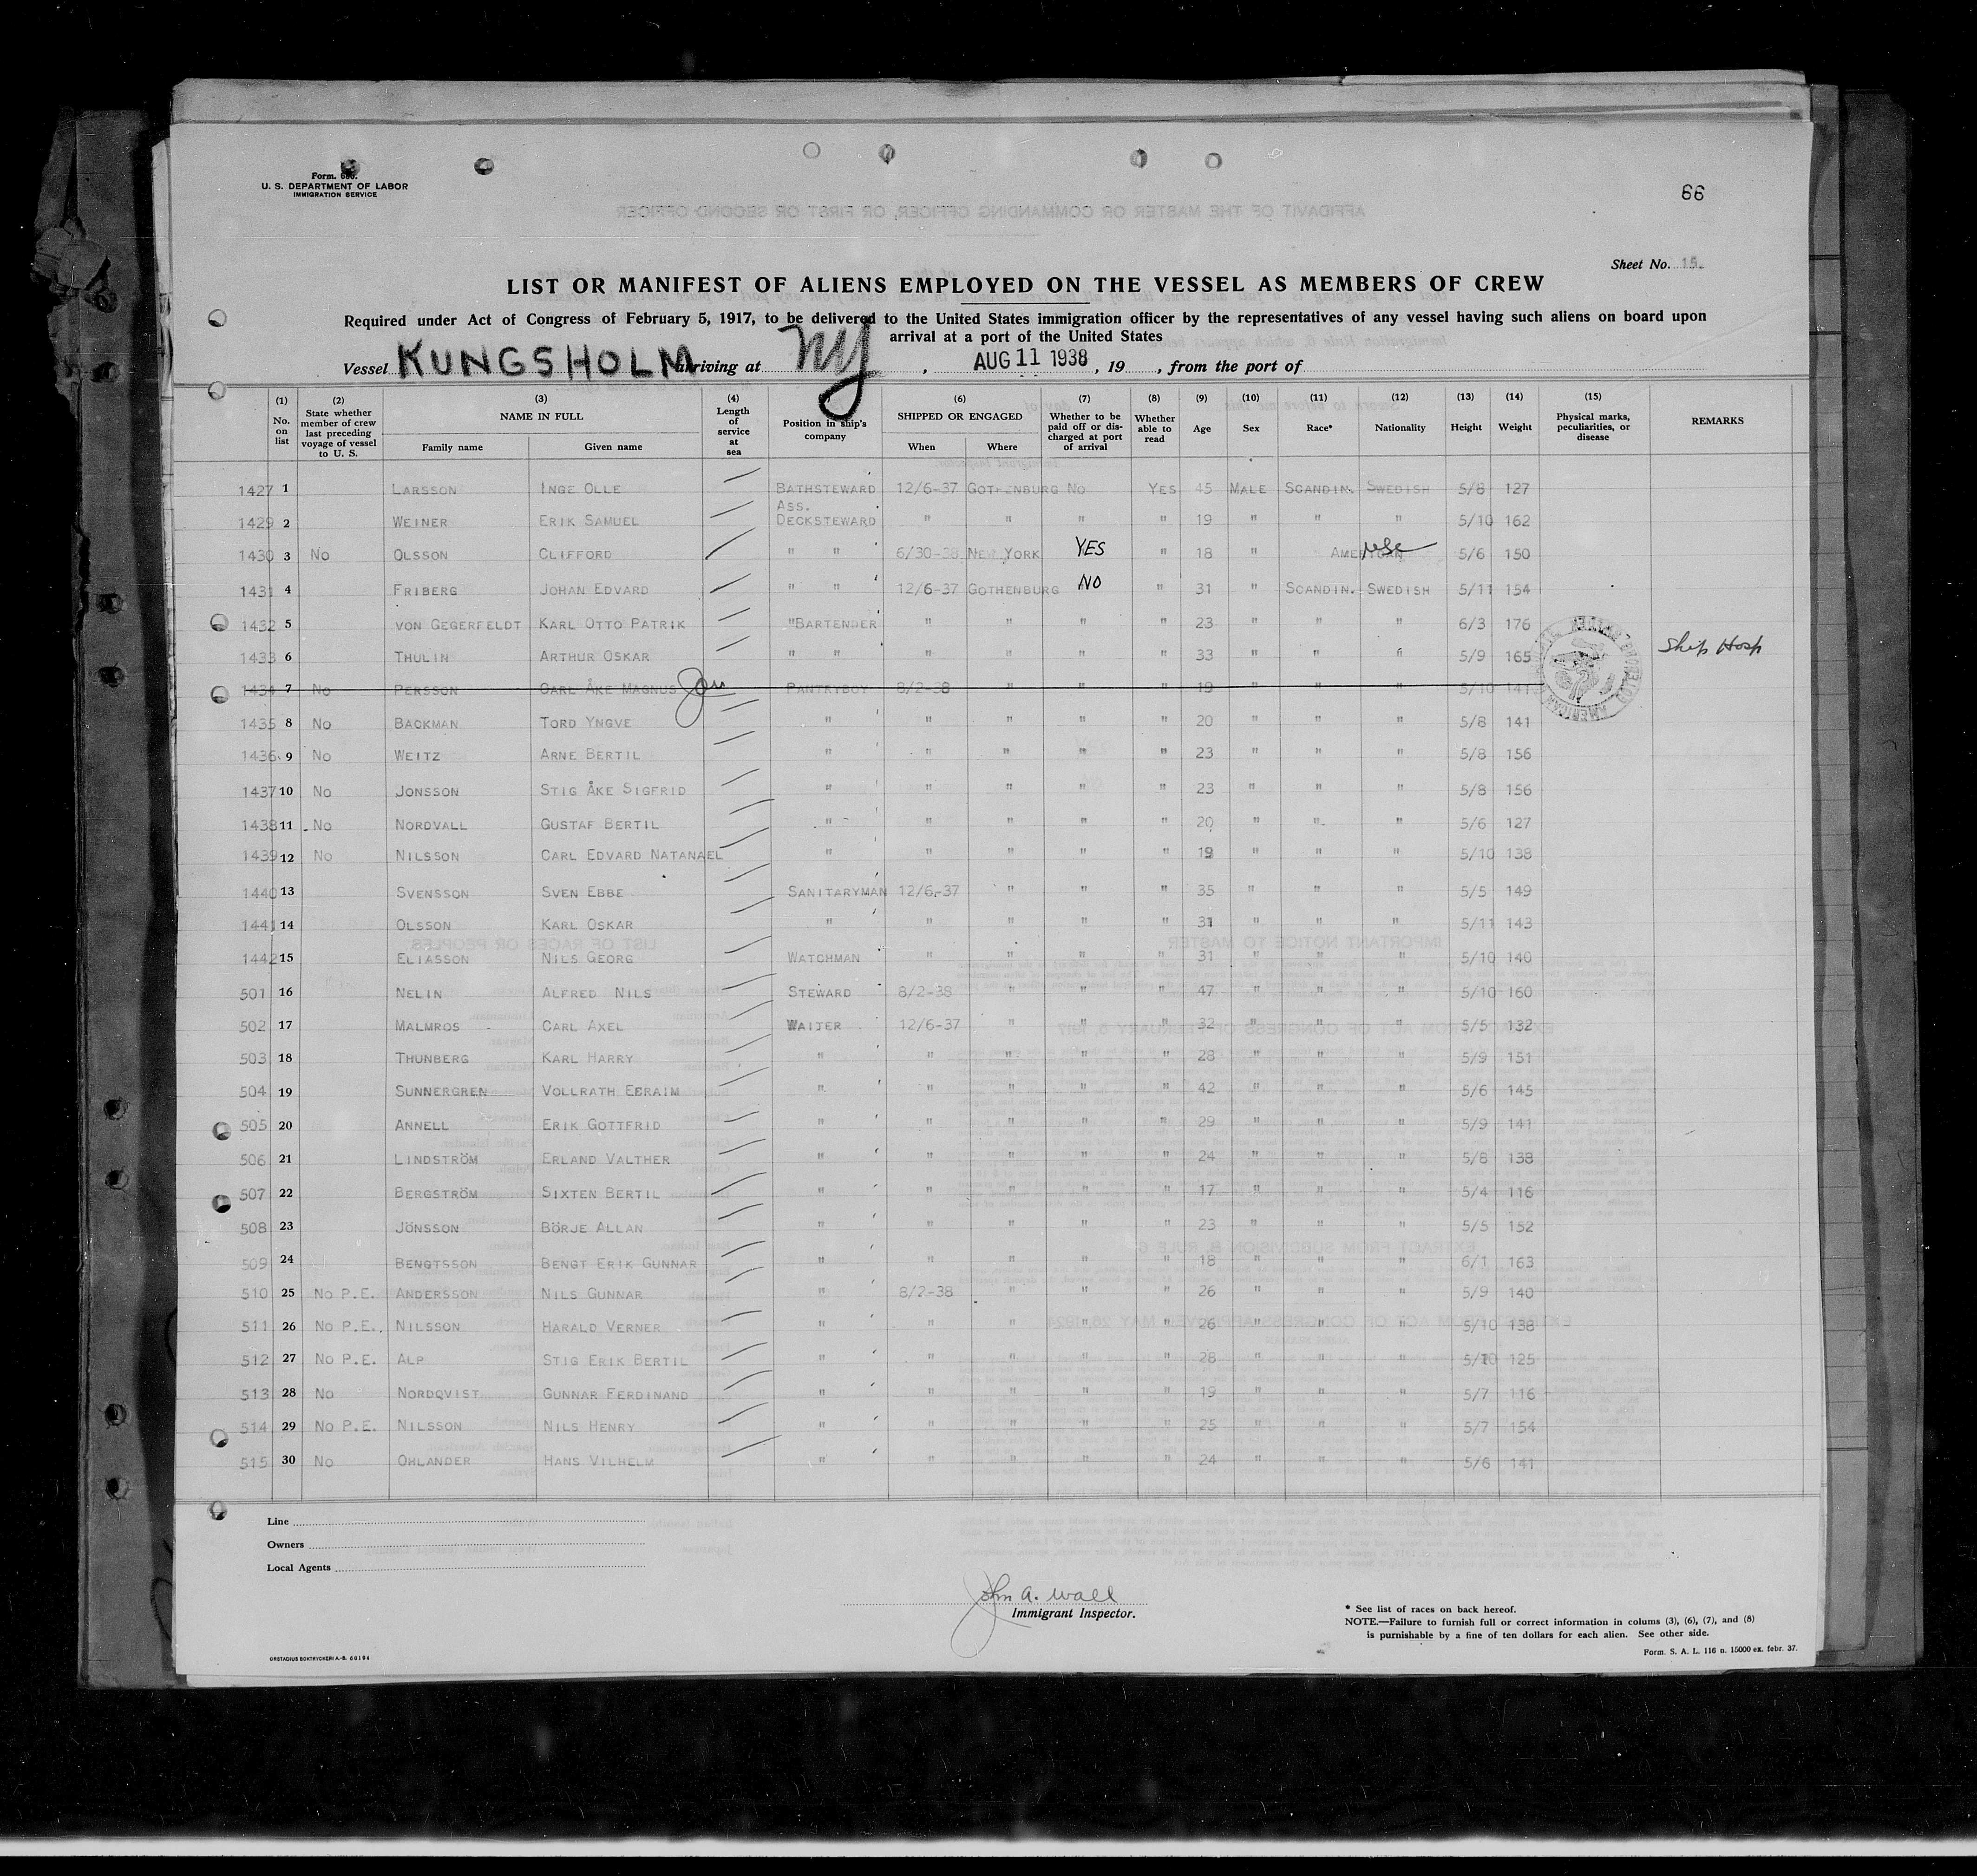 Form. 680.
U. S. DEPARTMENT OF LABOR
IMMIGRATION SERVICE
66
Sheet No. 15.
LIST OR MANIFEST OF ALIENS EMPLOYED ON THE VESSEL AS MEMBERS OF CREW
Required under Act of Congress of February 5, 1917, to be delivered to the United States immigration officer by the representatives of any vessel having such aliens on board upon
arrival at a port of the United States
Vessel KUNGSHOLM arriving at NY , AUG 11 1938 , 19 , from the port of
(1) No. on list (2) State whether member of crew last preceding voyage of vessel to U. S. (3) NAME IN FULL Family name Given name (4) Length of service at sea Position in ship's company (6) SHIPPED OR ENGAGED When Where (7) Whether to be paid off or discharged at port of arrival (8) Whether able to read (9) Age (10) Sex (11) Race* (12) Nationality (13) Height (14) Weight (15) Physical marks, peculiarities, or disease REMARKS
1427 1 LARSSON INGE OLLE BATHSTEWARD 12/6-37 GOTHENBURG NO YES 45 MALE SCANDIN. SWEDISH 5/8 127
1429 2 WEINER ERIK SAMUEL ASS. DECKSTEWARD " " " " 19 " " " 5/10 162
1430 3 NO OLSSON CLIFFORD " " 6/30-38 NEW YORK YES " 18 " AMERICAN USC 5/6 150
1431 4 FRIBERG JOHAN EDVARD " " 12/6-37 GOTHENBURG NO " 31 " SCANDIN. SWEDISH 5/11 154
1432 5 VON GEGERFELDT KARL OTTO PATRIK "BARTENDER " " " " 23 " " " 6/3 176
1433 6 THULIN ARTHUR OSKAR " " " " " " 33 " " " 5/9 165 Ship Hosp
1434 7 NO PERSSON CARL ÅKE MAGNUS PANTRYBOY 8/2-38 " " " 19 " " " 5/10 141
1435 8 NO BACKMAN TORD YNGVE " " " " " 20 " " " 5/8 141
1436 9 NO WEITZ ARNE BERTIL " " " " " 23 " " " 5/8 156
1437 10 NO JONSSON STIG ÅKE SIGFRID " " " " " 23 " " " 5/8 156
1438 11 NO NORDVALL GUSTAF BERTIL " " " " " 20 " " " 5/6 127
1439 12 NO NILSSON CARL EDVARD NATANAEL " " " " " 19 " " " 5/10 138
1440 13 SVENSSON SVEN EBBE SANITARYMAN 12/6-37 " " " 35 " " " 5/5 149
1441 14 OLSSON KARL OSKAR " " " " " 31 " " " 5/11 143
1442 15 ELIASSON NILS GEORG WATCHMAN " " " " 31 " " " 5/10 140
501 16 NELIN ALFRED NILS STEWARD 8/2-38 " " " 47 " " " 5/10 160
502 17 MALMROS CARL AXEL WAITER 12/6-37 " " " 32 " " " 5/5 132
503 18 THUNBERG KARL HARRY " " " " " 28 " " " 5/9 151
504 19 SUNNERGREN VOLLRATH EFRAIM " " " " " 42 " " " 5/6 145
505 20 ANNELL ERIK GOTTFRID " " " " " 29 " " " 5/9 141
506 21 LINDSTRÖM ERLAND VALTHER " " " " " 24 " " " 5/8 138
507 22 BERGSTRÖM SIXTEN BERTIL " " " " " 17 " " " 5/4 116
508 23 JÖNSSON BÖRJE ALLAN " " " " " 23 " " " 5/5 152
509 24 BENGTSSON BENGT ERIK GUNNAR " " " " " 18 " " " 6/1 163
510 25 NO P.E. ANDERSSON NILS GUNNAR " 8/2-38 " " " 26 " " " 5/9 140
511 26 NO P.E. NILSSON HARALD VERNER " " " " " 26 " " " 5/10 138
512 27 NO P.E. ALP STIG ERIK BERTIL " " " " " 28 " " " 5/10 125
513 28 NO NORDQVIST GUNNAR FERDINAND " " " " " 19 " " " 5/7 116
514 29 NO P.E. NILSSON NILS HENRY " " " " " 25 " " " 5/7 154
515 30 NO OHLANDER HANS VILHELM " " " " " 24 " " " 5/6 141
Line
Owners
Local Agents
John A. Wall
Immigrant Inspector.
* See list of races on back hereof.
NOTE.—Failure to furnish full or correct information in colums (3), (6), (7), and (8)
is punishable by a fine of ten dollars for each alien. See other side.
Form. S. A. L. 116 n. 15000 ex. febr. 37.
ORSTADIUS BOKTRYCKERI A.-B. 60184